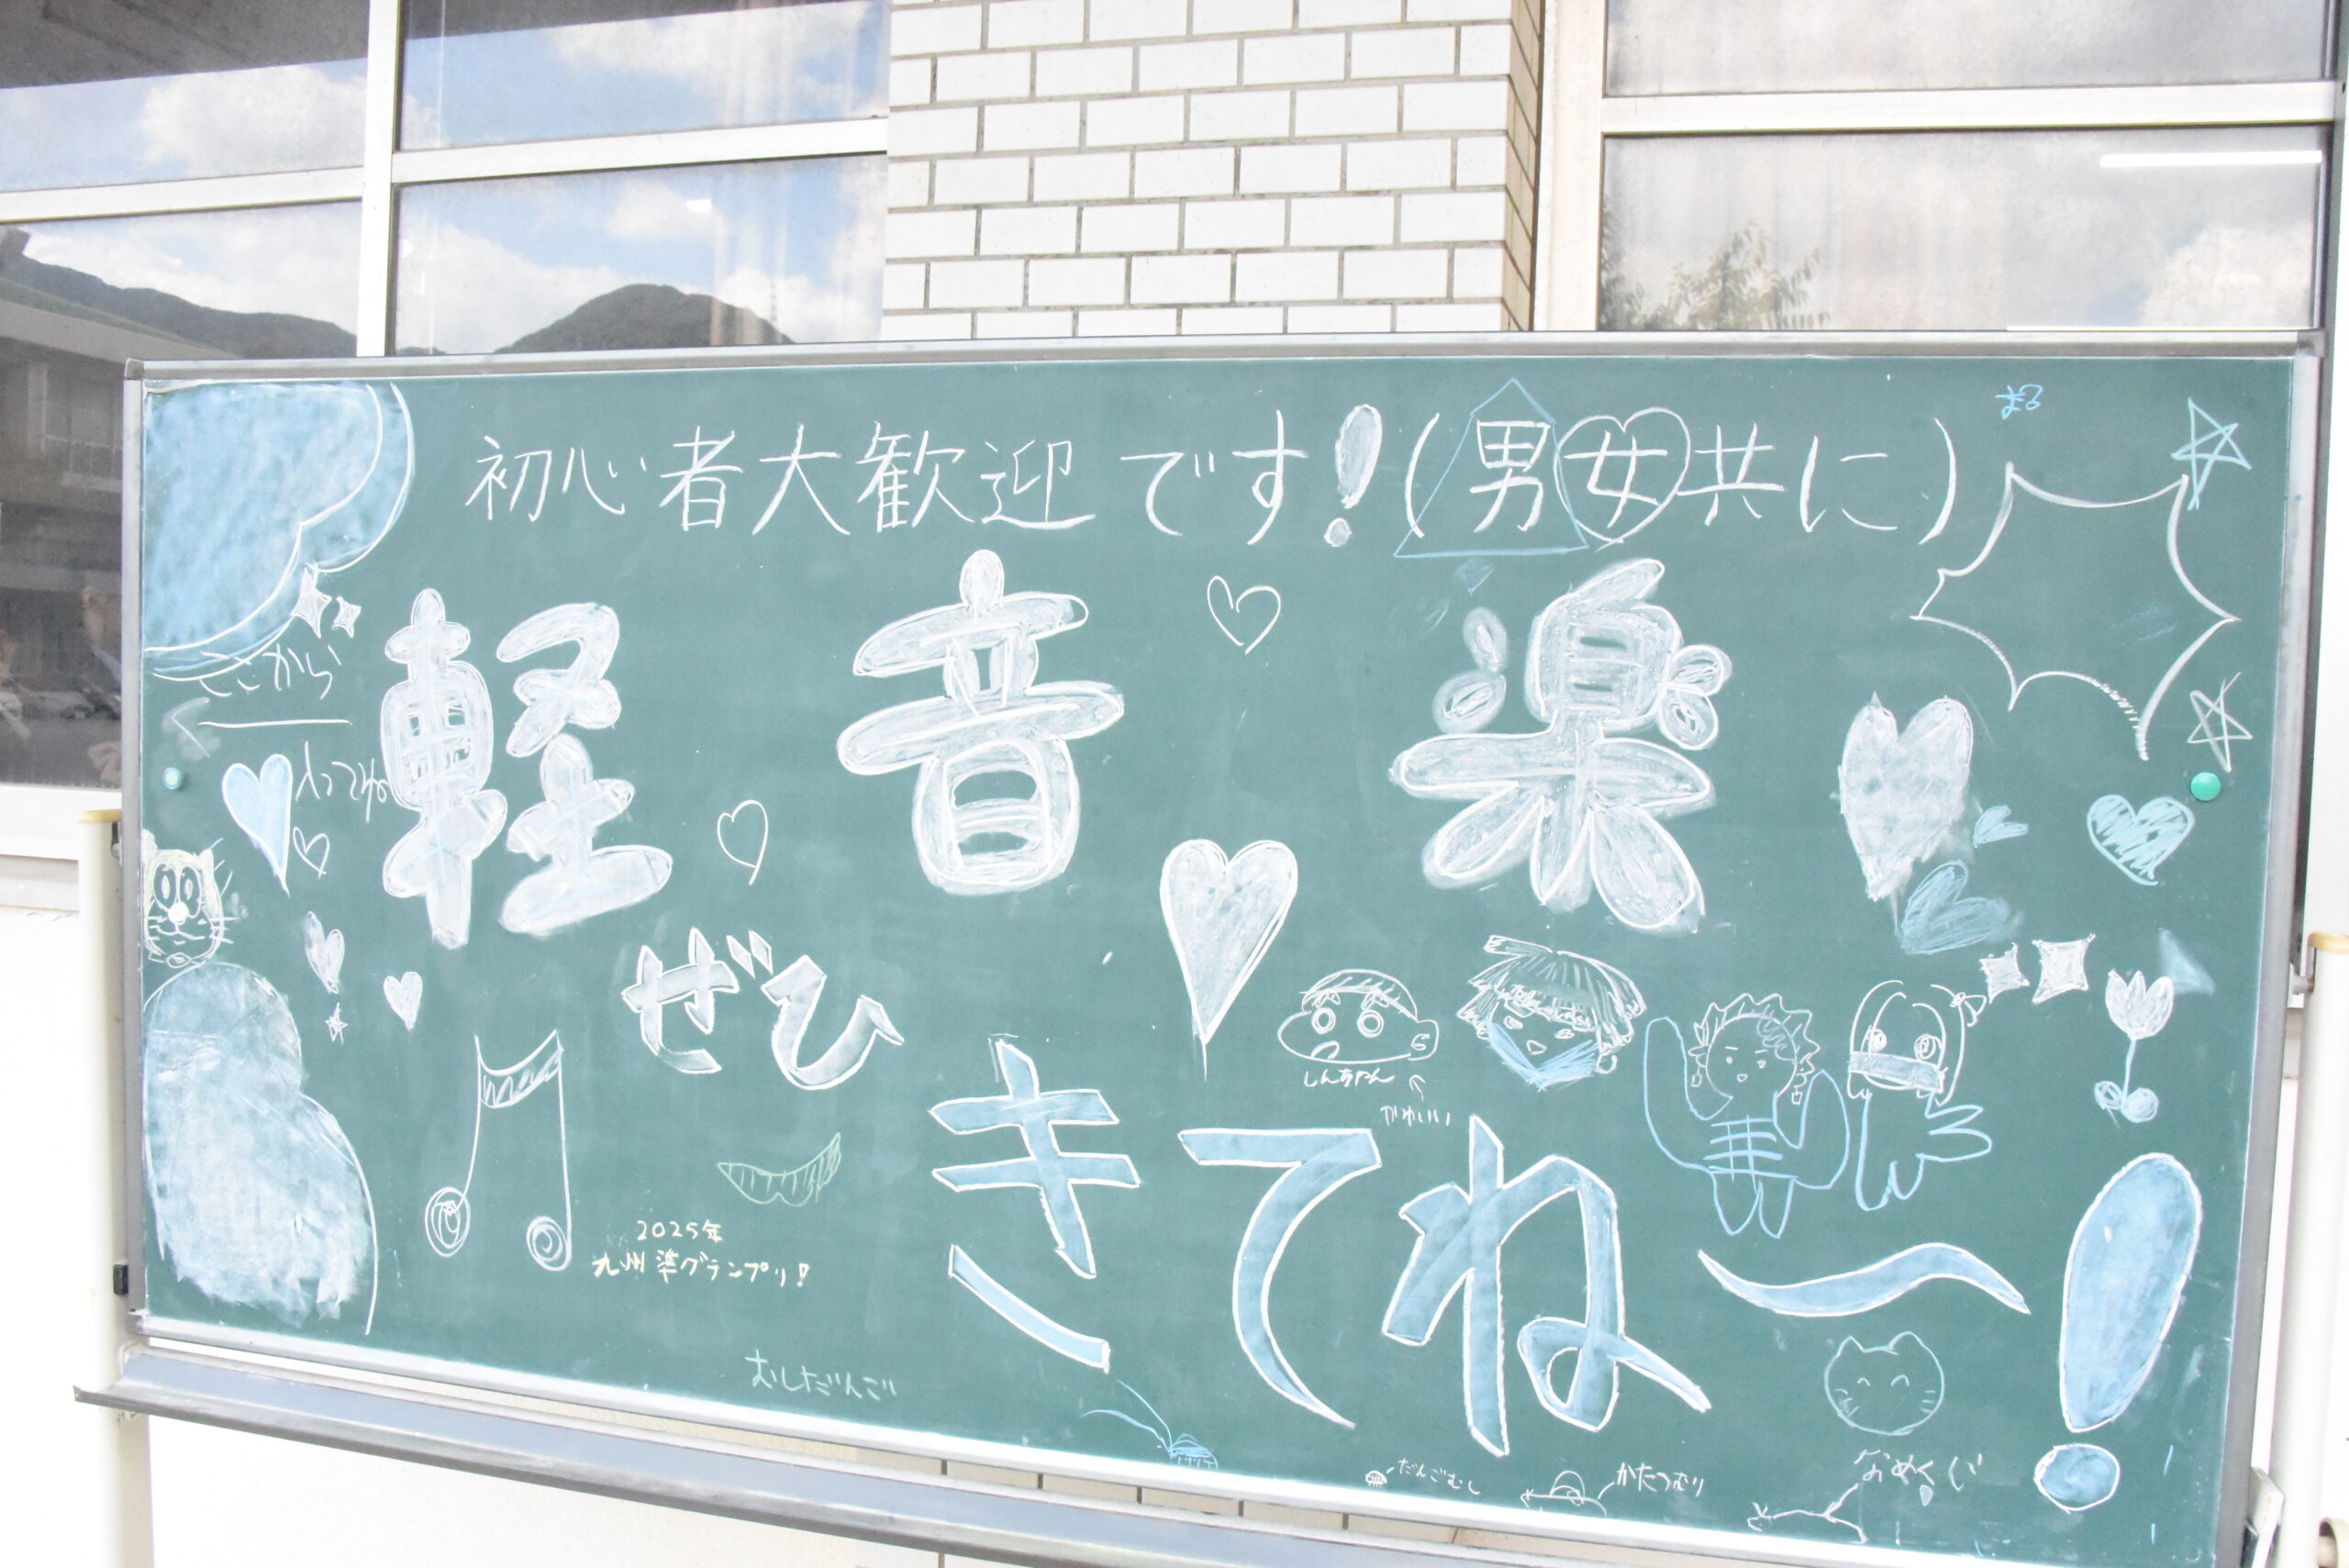 初心者大歓迎です!(男女共に)
まる
ここから
入ってね
軽音楽
ぜひ
きてね〜!
しんちゃん
かわいい
2025年
九州準グランプリ!
むしだんご
だんごむし
かたつむり
なめくじ